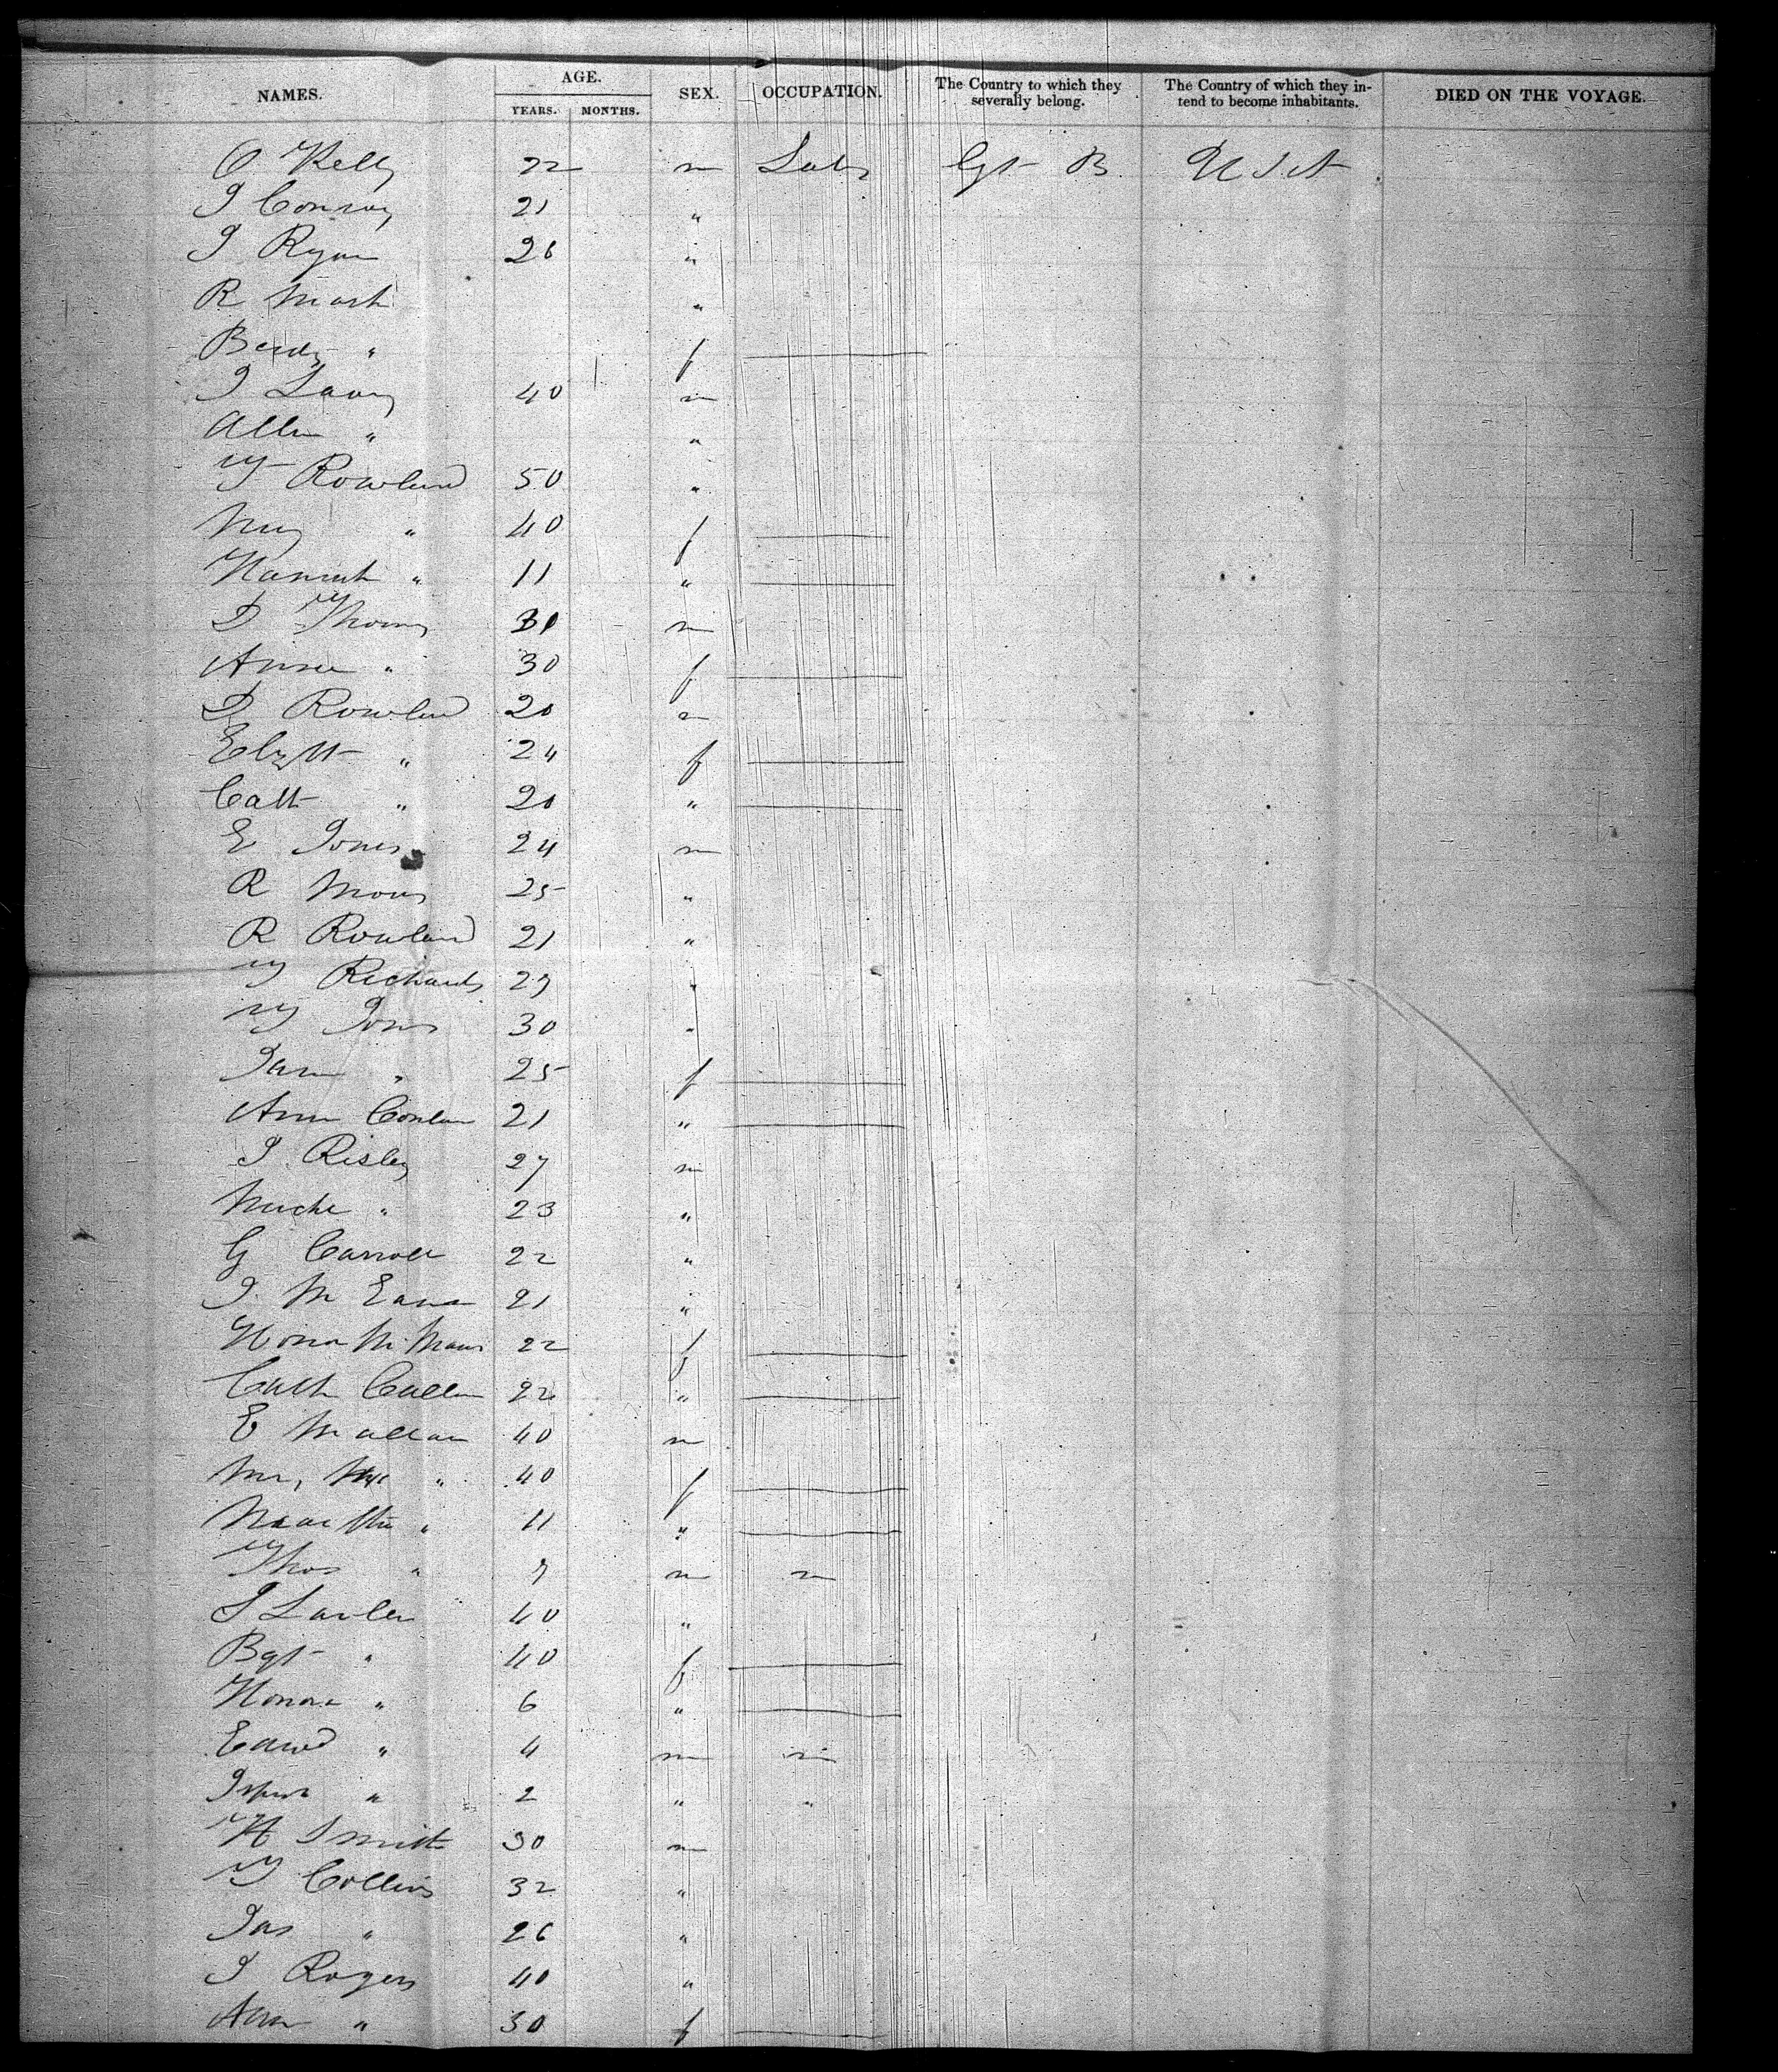 NAMES. AGE. SEX. OCCUPATION. The Country to which they severally belong. The Country of which they intend to become inhabitants. DIED ON THE VOYAGE.
YEARS. MONTHS.
O Kelly 22 m Labr Gt B. U S A
J Conroy 21 "
J Ryan 26 "
R Mark "
" f
J 40 m
Allen " "
T Rowland 50 "
" 40 f
Hannah " 11 "
D Thomas 31 m
Anne " 30 f
D Rowland 20 m
Elizth " 24 f
Cath " 20 "
E Jones 24 m
R 25 "
R Rowland 21 "
T Richards 27 "
T Jones 30 "
Jane " 25 f
Ann Conlan 21 "
J Risley 27 m
Miche " 23 "
G Carroll 22 "
J. 21 "
Hona 22 f
Cath Cullen 22 "
E 40 m
" 40 f
Martha " 11 "
Thos " 7 m m
J Lawler 40 "
Bgt " 40 f
Honora " 6 "
Edwd " 4 m m
Joseph " 2 " "
H Smith 30 m
T Collins 32 "
Jas " 26 "
J Rogers 40 "
Ann " 30 f